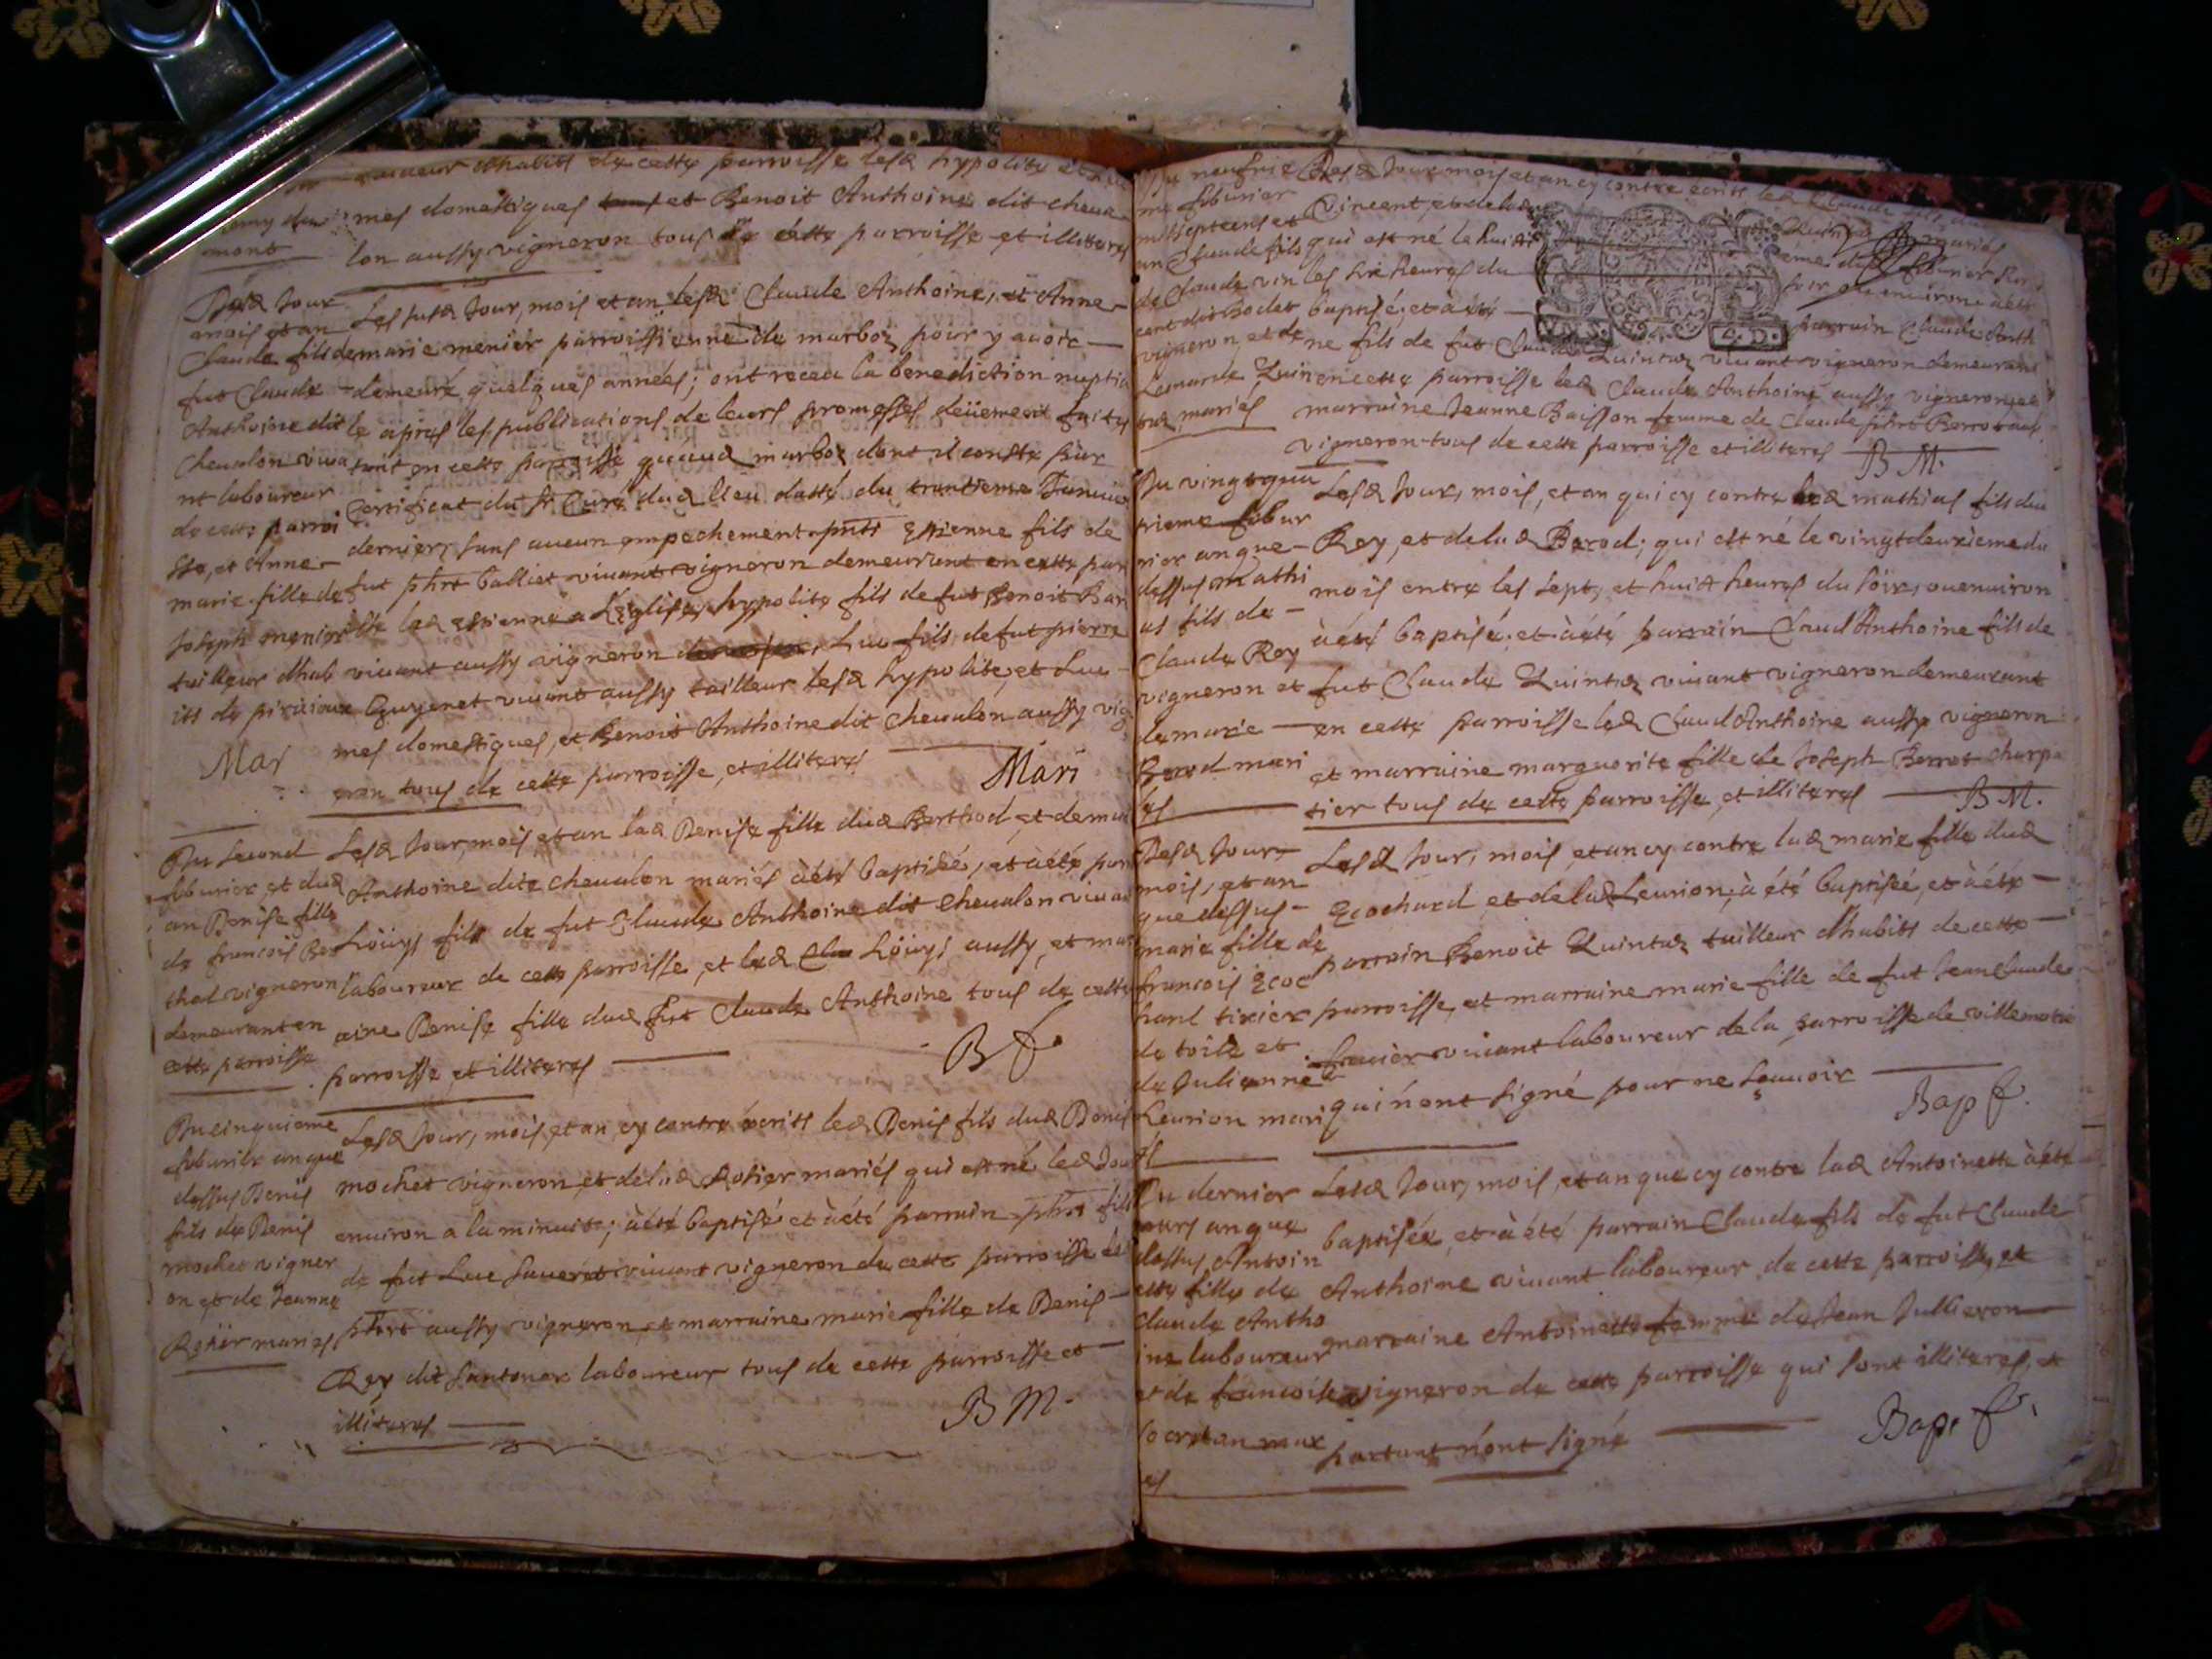 tailleur dhabits de cette parroisse lesd hypolite et
mes domestiques et Benoit Anthoine dit cheua
lon aussy vigneron tous de cette parroisse et illiteres
amy du
mont
Desd Jour
mois et an
Claude fils de
fut Claude
Anthoine dit
Cheualon viua
nt laboureur
de cette parroi
sse, et Anne
marie fille de
Joseph menier
tailleur dhab
its de pirajoux
Mar
Les susd Jour, mois et an lesd Claude Anthoine, et Anne
marie menier parroissienne de marboz pour y auoir
demeuré quelques années; ont receu la benediction nuptia
le apres les publications de leurs promesses deüement faites
tant en cette parroisse quaud marboz dont il conste par
Certificat du Sr Curé dud lieu datté du trentieme Januier
dernier, sans aucun empechement pnts Estienne fils de
fut phrt balliet viuant vigneron demeurant en cette par
sse led estienne a Léglise, hypolite fils de fut Benoit Bar
viuant aussy vigneron, Luc fils de fut pierre
Guyenet viuant aussy tailleur lesd hypolite, et Luc
mes domestiques, et Benoit Anthoine dit cheualon aussy vig
eron tous de cette parroisse, et illiteres
Mari
Du second
feburier et dud
an Denise fille
de francois Ber
thod vigneron
demeurant en
cette parroisse
Lesd Jour, mois et an lad Denise fille dud Berthod et de mad
Anthoine dite cheualon mariés à été baptisée, et à été par
Löuys fils de fut Claude Anthoine dit cheualon viuant
laboureur de cette parroisse, et led Löuys aussy, et mar
aine Denise fille dud fut Claude Anthoine tous de cette
parroisse et illiteres
B f.
Du cinquieme
feburier an que
dessus Denis
fils de Denis
mochet vigner
on et de Jeanne
Rotier mariés
Lesd Jour, mois, et an cy contre écrits led Denis fils dud Denis
mochet vigneron et de lad Rotier mariés qui est né led Jour
enuiron a la minuite; à été baptisé et à été parrain phrt fils
de fut Luc Saueret viuant vigneron de cette parroisse led
phrt aussy vigneron, et marraine marie fille de Denis
Rey dit santonax laboureur tous de cette parroisse et
illiteres
B M.
Du neufuie
me feburier
mil sept cens et
un Claude fils
de Claude vin
cent dit Bodet
vigneron, et de
Lemarde Quin
taz mariés
Lesd Jour mois et an cy contre écrits led Claude
Vincent, et de lad
qui est né le huiti
ème dud feburier
les six heures du
soir ou enuiron à été
baptisé; et à été
parrain Claude Anth
ne fils de fut Claude Quintaz viuant vigneron demeurant
en cette parroisse led Claude Anthoine aussy vigneron, et
marraine Jeanne Buisson femme de Claude phrt
vigneron tous de cette parroisse et illiteres
B M.
Du vingt qua
trieme febur
rier an que
dessus Mathi
as fils de
Claude Rey
vigneron et
de marie
Berod mari
és
Lesd Jour, mois, et an qui cy contre led mathias fils du
Rey, et de lad Berod; qui est né le vingt deuxième du
mois entre les sept, et huit heures du soir, ou enuiron
à été baptisé; et à été parrain Claud Anthoine fils de
fut Claude Quintaz viuant vigneron demeurant
en cette parroisse led Claud Anthoine aussy vigneron
et marraine marguerite fille de Joseph Berrot charpa
tier tous de cette parroisse, et illiteres
B M.
Desd Jour,
mois, et an
que dessus
marie fille de
francois Ecoc
hard tixier
de toile et
de Julienne
Leurion mari
és
Lesd Jour, mois, et an cy contre lad marie fille dud
Ecochard et de lad Leurion, à été baptisée, et à été
parrain Benoit Quintaz tailleur dhabits de cette
parroisse, et marraine marie fille de fut Jean claude
viuant laboureur de la parroisse de villemotie
qui n'ont signé pour ne scauoir
Bap f.
Du dernier
mars an que
dessus Antoin
ette fille de
claude Antho
ine laboureur
et de francoise
Socretan mar
es
Lesd Jour, mois, et an que cy contre lad Antoinette à été
baptisée, et à été parrain Claude fils de fut Claude
Anthoine viuant laboureur de cette parroisse, et
marraine Antoinette femme de Jean Jullieron
vigneron de cette parroisse qui sont illiteres, et
partant n'ont signé
Bap. f.